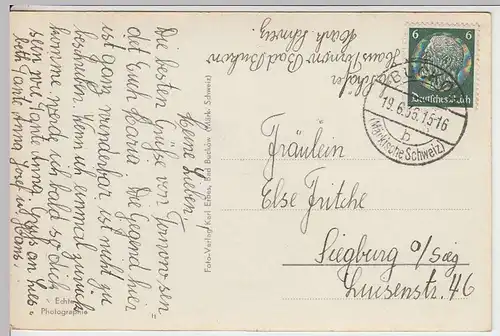 Meine Lieben.
Die besten Grüße von Tornow sen
det Euch Maria. Die Gegend hier
ist ganz wunderbar ist nicht zu
beschreiben. Wenn ich einmal zurück
komme werde ich bald so dick
sein wie Tante Anna. Gruß an Lies-
beth Tante Anna Josef u.
Hans.
Schäfer
Haus Tornow Bad Buckow
Märk. Schweiz.
Foto-Verlag Karl Bad Buckow (Märk. Schweiz)
Echte
Photographie
6 6
Deutsches Reich
BUCKOW
19.6.36.15-16
b
(Märkische Schweiz)
Fräulein
Else Fritche
Siegburg a/Sieg
Luisenstr. 46